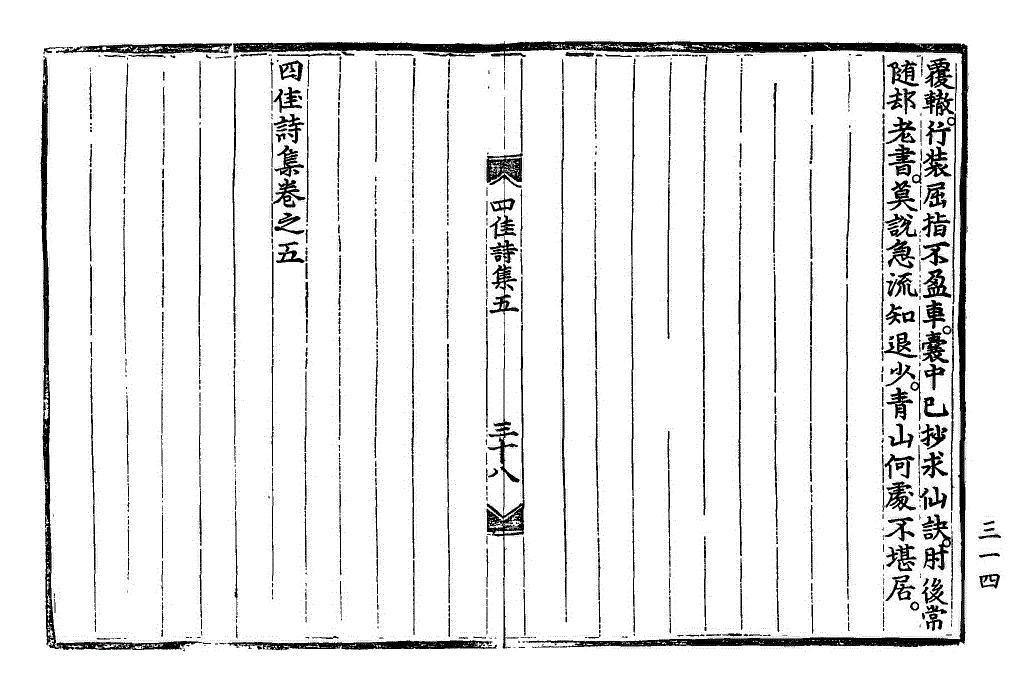 覆轍。行装屈指不盈車。囊中已抄求仙訣。肘後常
随却老書。莫說急流知退少。青山何處不堪居。
四佳詩集五
三十八
四佳詩集卷之五
三一四